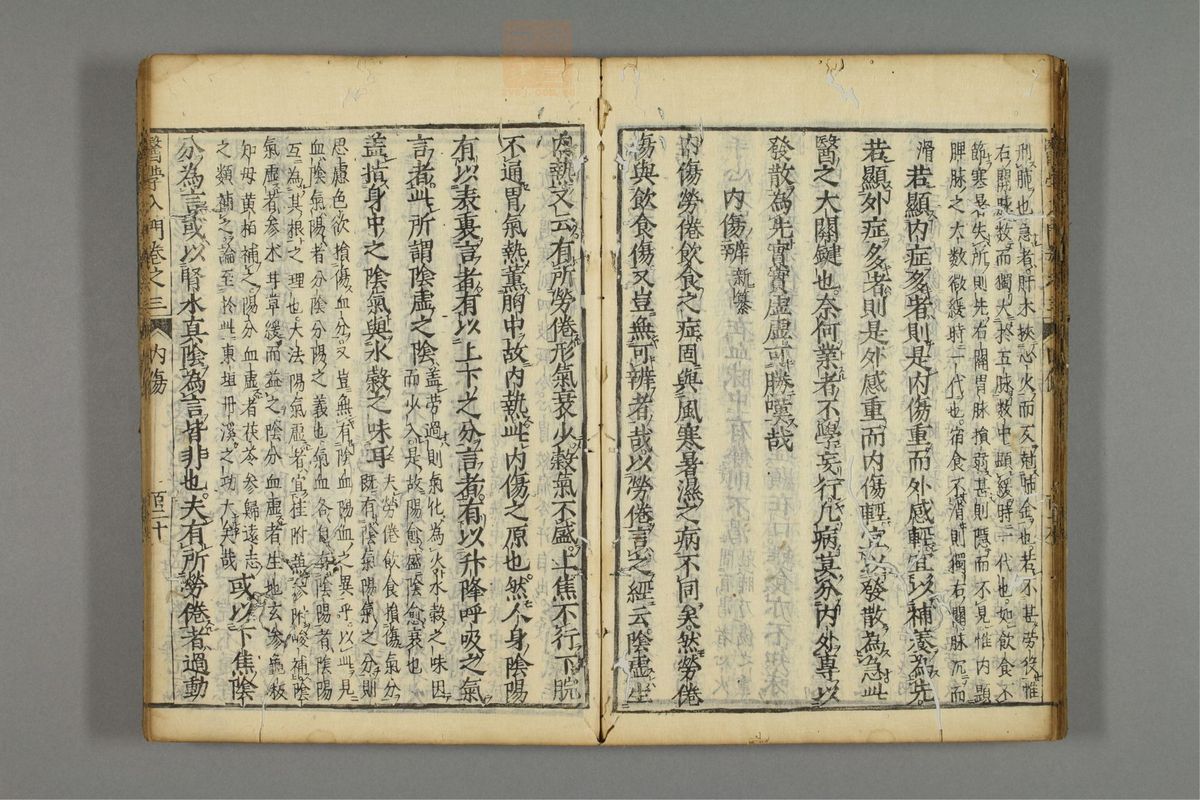 刑肺也急者肝木挾心火而反尅肺金也若不甚勞役惟
右關脾脉數而獨大於五脉數中顯緩時一代也如飲食不
節寒温失所則先右關胃脉損弱甚則隱而不見惟内顯
脾脉之大數微緩時一代也宿食不消則獨右關脉沉而
滑若顯内症多者則是内傷重而外感輕宜以補養為先
若顯外症多者則是外感重而内傷輕宜以發散為急此
醫之大關鍵也奈何業者不學妄行凡病莫分内外專以
發散為先實實虚虚可勝嘆哉
内傷辨新纂
内傷勞倦飲食之症固與風寒暑濕之病不同矣然勞倦
傷與飲食傷又豈無可辨者哉以勞倦言之經云陰虚生
内熱又云有所勞倦形氣衰少穀氣不盛上焦不行下脘
不通胃氣熱薫胸中故内熱此内傷之原也然人身陰陽
有以表裏言者有以上下之分言者有以升降呼吸之氣
言者此所謂陰虚之陰蓋勞過則氣化為火水穀之味因
而少入是故陽愈盛陰愈衰也
蓋損身中之陰氣與水穀之味耳夫勞倦飲食損傷氣分
既有陰氣陽氣之分則
思慮色欲損傷血分又豈無有陰血陽血之異乎以此見
血陰氣陽者分陰分陽之義也氣血各自有陰陽者陰陽
互為其根之理也大法陽氣虚者宜桂附兼參峻補陰
氣虚者參朮甘草緩而益之陰分血虚者生地玄參龜板
知母黄栢補之陽分血虚者茯苓參歸遠志
之類補之論至於此東垣丹溪之功大矣哉或以下焦陰
分為言或以腎水真陰為言皆非也夫有所勞倦者過動
醫學入門卷之三 内傷 百二十